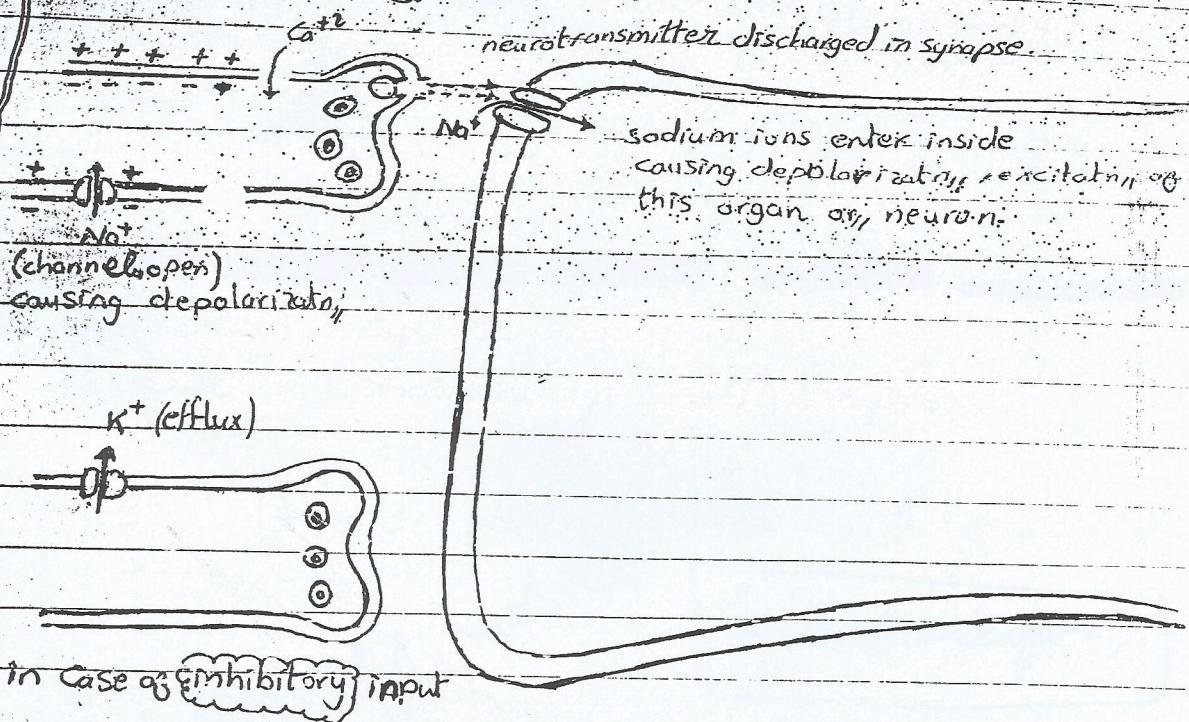 Ca+2
neurotransmitter discharged in synapse.
+ + + + +
- - - - -
Na+
sodium ions enter inside
causing depolarizatn,, , excitatn,, of
this organ or,, neuron.
+ +
- -
Na+
(channel open)
causing depolarizatn,,
K+ (efflux)
in Case of inhibitory input